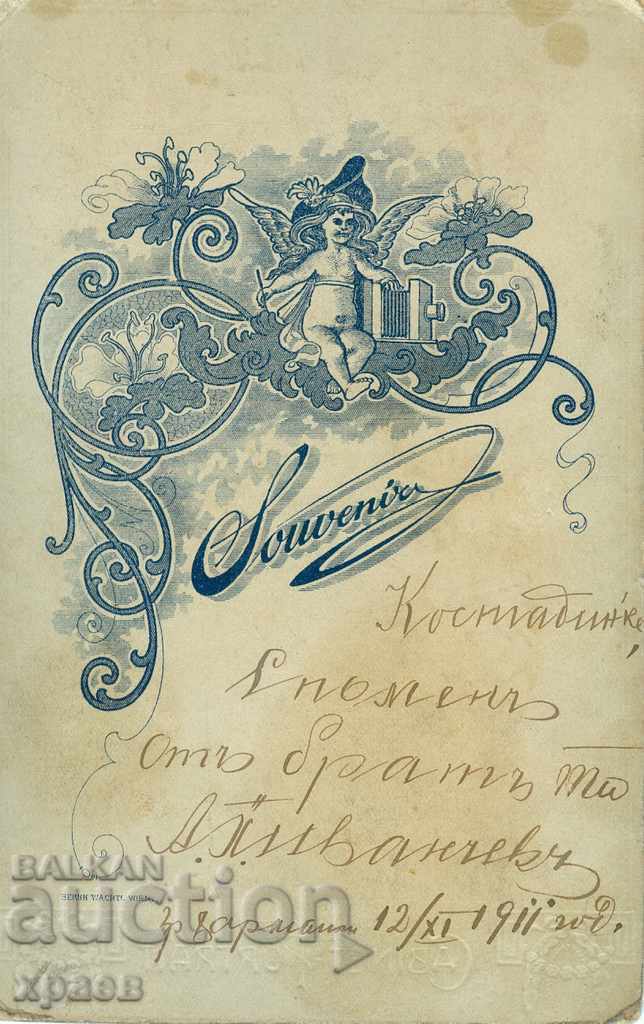 Souvenir
Костадинке,
Споменъ
отъ братъ ти
А. П. Иванчевъ
12/XI 1911 год.
BERNH WACHTL WIEN
BALKAN
auction
храов